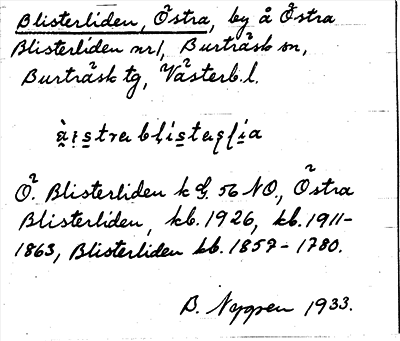 Blisterliden, Östra, by å Östra
Blisterliden nr1, Burträsk sn,
Burträsk tg, Västerb.l.
Ö. Blisterliden k G. 56 NO., Östra
Blisterliden, kb. 1926, kb. 1911-
1863, Blisterliden kb. 1857-1780.
B. Nygren 1933.